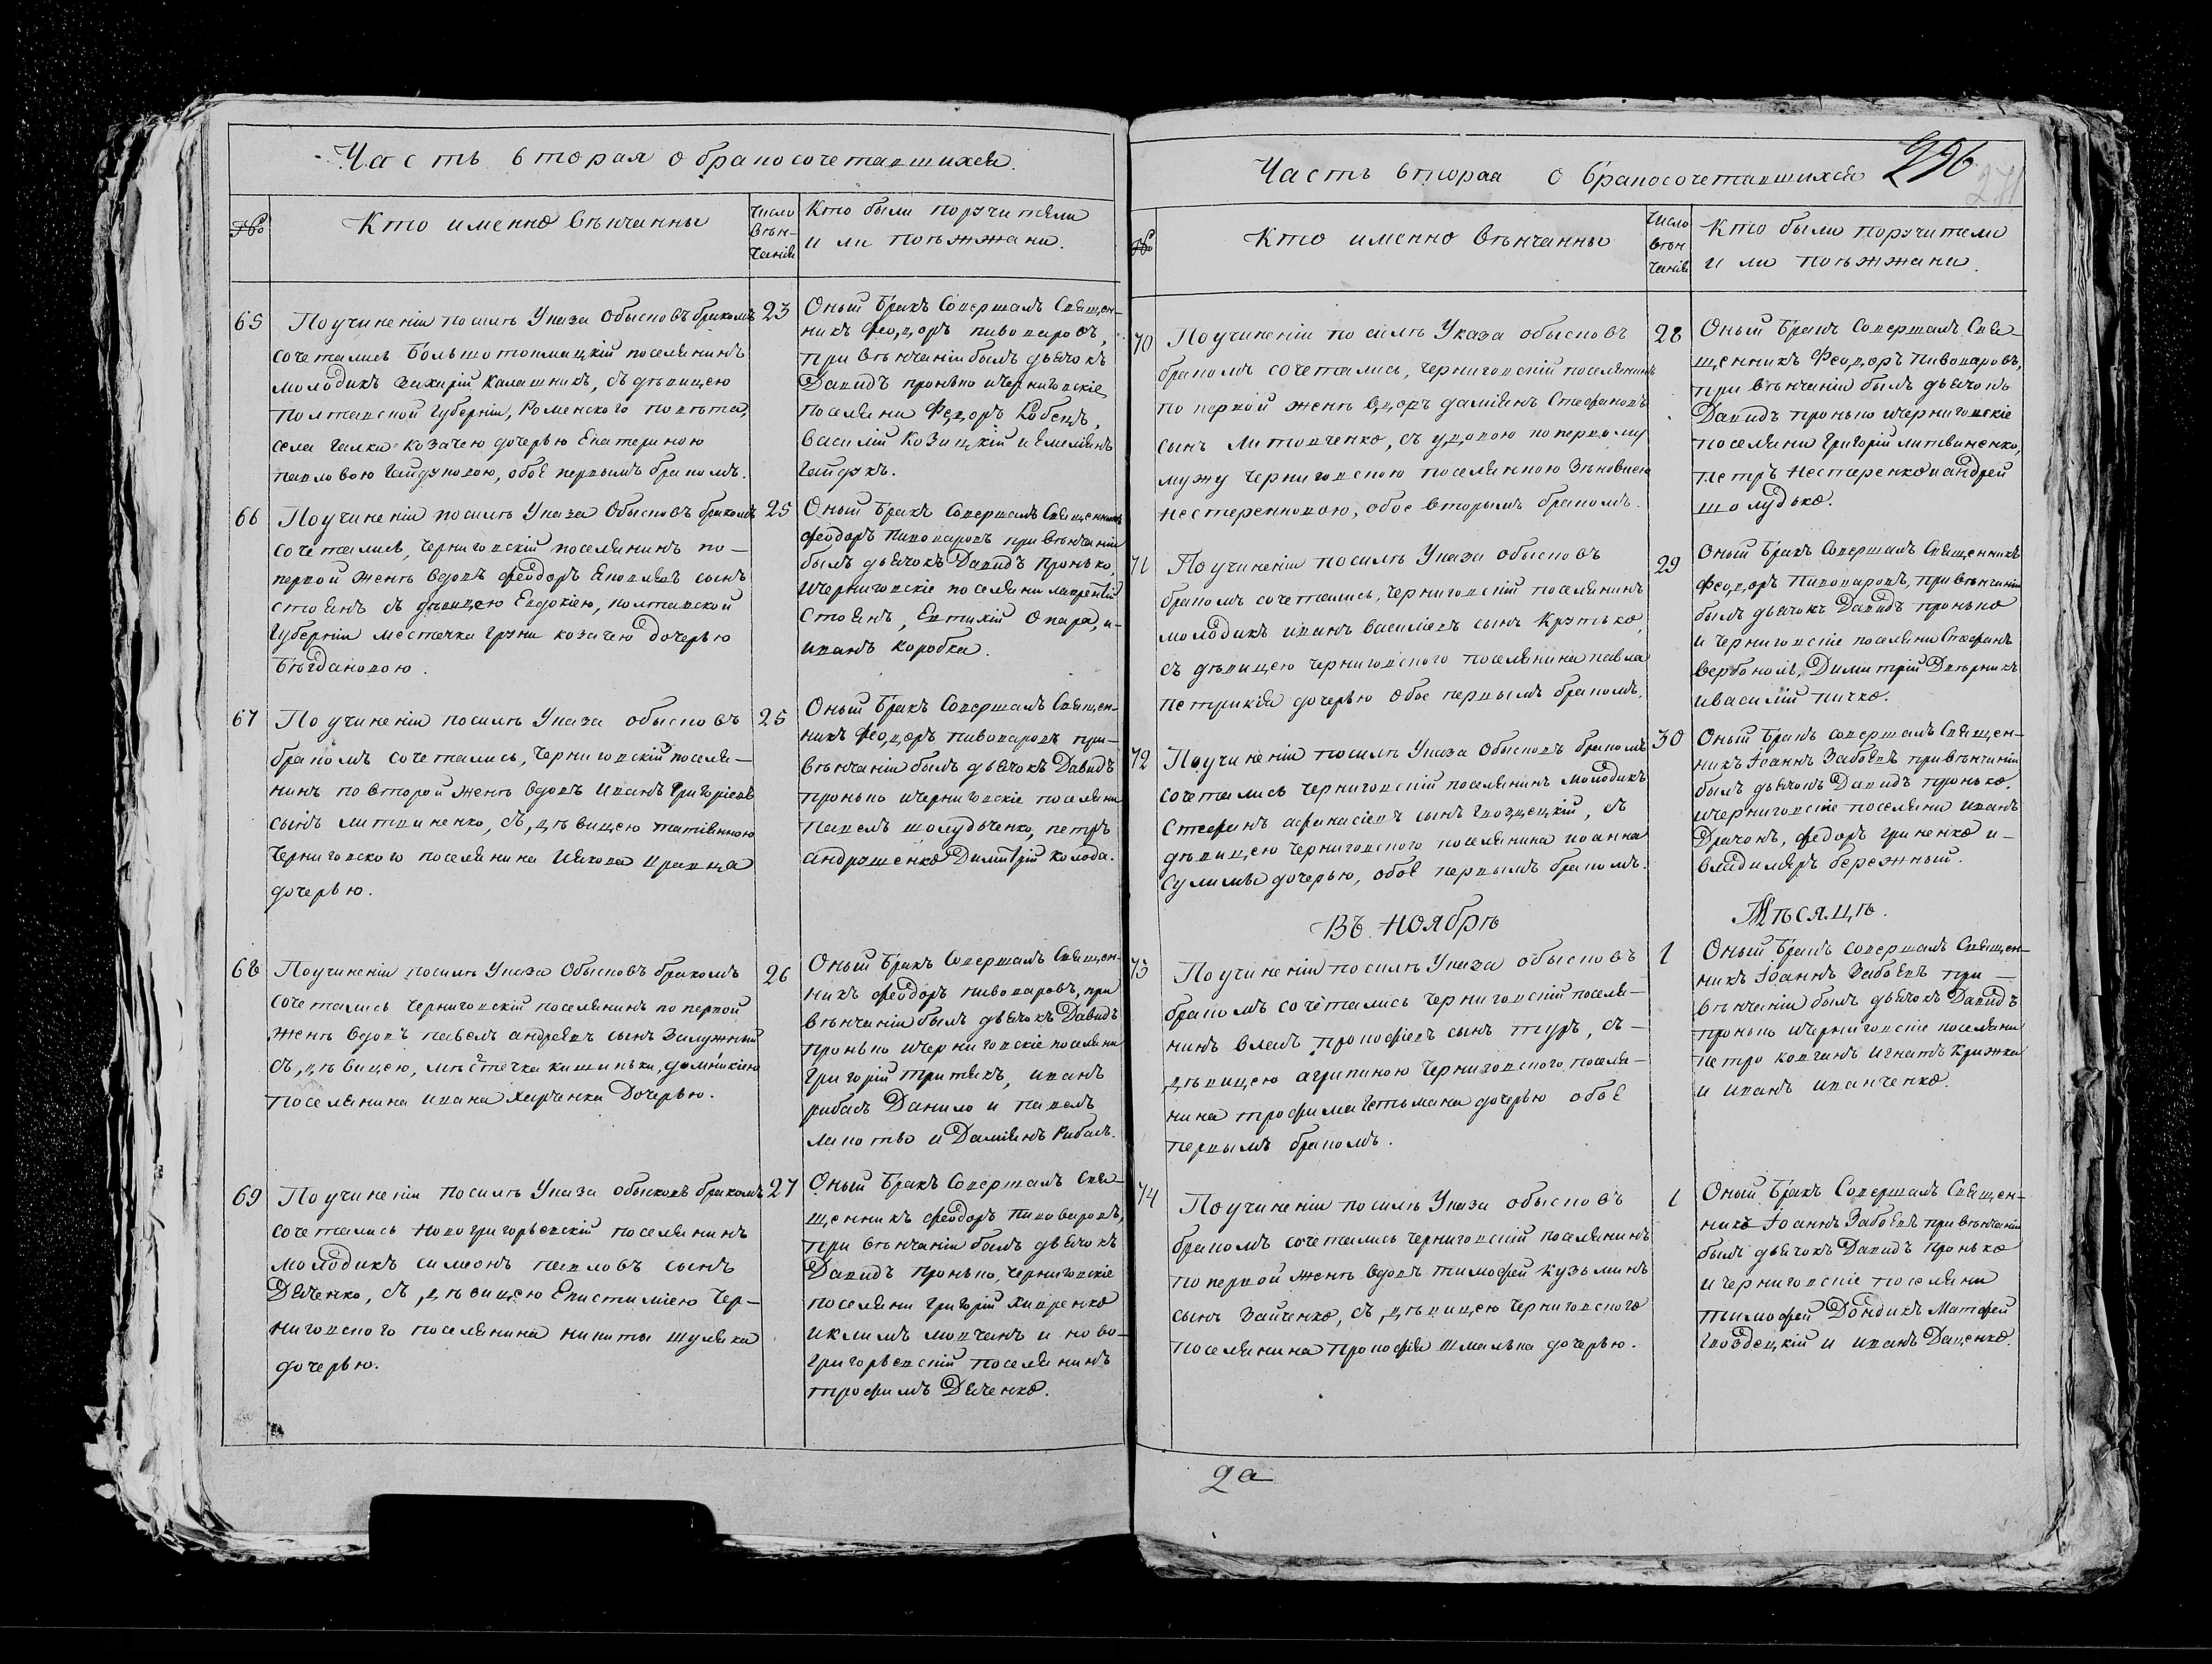 Часть вторая о бракосочетавшихся.
№
Кто именно вѣнчанны
Число
вѣн-
чанія
Кто были поручители
и ли поѣзжани.
65
По учиненіи посилѣ Указа обысковъ бракомъ
сочетались Большотокмацкій поселянинъ
молодикъ Захарій Калашникъ, съ дѣвицею
Полтавской губерніи, Роменского повѣта,
села Галки козачею дочерью Екатериною
Павловою Гайдуковою, обое первымъ бракомъ.
23
Оный Бракъ Совершалъ Священ-
никъ Феодоръ Пивоваровъ,
при вѣнчаніи былъ дьячокъ
Давидъ Пронько ичерниговскіе
поселяни Федоръ Кобецъ,
Василій Козицкій и Емелянъ
Гайдукъ.
66
По учиненіи посилѣ Указа Обысковъ бракомъ
сочетались, черниговскій поселянинъ по-
первой женѣ вдовъ Феодоръ Яковлевъ сынъ
Стоянъ съ дѣвицею Евдокіею, полтавской
Губерніи местечка Груни козачею дочерью
Богдановою.
25
Оный Бракъ Совершалъ Священникъ
Феодоръ Пивоваровъ при вѣнчаніи
былъ дьячокъ Давидъ Пронько.
Ичерниговскіе поселяни Лаврентій
Стоянъ, Евтихій Опара, и-
Иванъ Коробка.
67
По учиненіи посилѣ Указа обысковъ
бракомъ сочетались, Черниговскій поселя-
нинъ повторой женѣ вдовъ Иванъ Григоріевъ
сынъ Литвиненко, съ, дѣвицею татіяною
Черниговского поселянина Якова Кравца
дочерью.
25
Оный Бракъ Совершалъ Священ-
никъ Феодоръ Пивоваровъ при-
вѣнчаніи былъ дьячокъ Давидъ
Пронько ичерниговскіе поселяни
Павелъ шолудьченко, петръ
Андрущенко Димитрій колода.
68
По учиненіи посилѣ Указа Обысковъ бракомъ
сочетались черниговскій поселянинъ по первой
женѣ вдовъ павелъ андреевъ сынъ Залужный
съ, дѣвицею, мѣстечка кишиньки, домникіею
поселянина ивана Харченка Дочерью.
26
Оный Бракъ Совершалъ Священ-
никъ Феодоръ пивоваровъ, при
вѣнчаніи былъ дьячокъ Давидъ
Пронько ичерниговскіе поселяни
Григорій Третякъ, иванъ
рибасъ Данило и павелъ
лапотво и Даміянъ Рибасъ.
69
По учиненіи посилѣ Указа обысковъ бракомъ
сочетались новогригорьевскій поселянинъ
молодикъ симеонъ павловъ сынъ
Дяченко, съ, дѣвицею Епистиміею Чер-
ниговского поселянина никиты шуляка
дочерью.
27
Оный Бракъ Совершалъ Свя-
щенникъ Феодоръ Пивоваровъ,
при вѣнчаніи былъ дьячокъ
Давидъ пронько, черниговскіе
поселяни григорій хивренко
иклимъ мовчанъ и ново-
григорьевскій поселянинъ
трофимъ Дяченко.
Часть вторая о бракосочетавшихся
296
271
№
Кто именно вѣнчанны
Число
вѣн
чанія
Кто были поручители
и ли поѣзжани.
70
По учиненіи по силѣ Указа обысковъ
бракомъ сочетались, черниговскій поселянинъ
по первой женѣ вдовъ даміянъ Стефановъ
сынъ литовченко, съ удовою по первому
мужу черниговскою поселянкою Зѣновіею
нестеренковою, обое вторымъ бракомъ.
28
Оный Бракъ Совершалъ Свя-
щенникъ Феодоръ Пивоваровъ,
при вѣнчаніи былъ дьячокъ
Давидъ пронько ичерниговскіе
поселяни Григорій литвиненко,
петръ нестеренко и андрей
шолудько.
71
По учиненіи посилѣ Указа обысковъ
бракомъ сочетались, черниговскій поселянинъ
молодикъ иванъ василіевъ сынъ Крутько,
съ дѣвицею черниговского поселянина павла
петрикія дочерью обое первымъ бракомъ.
29
Оный Бракъ Совершалъ Священникъ
Феодоръ Пивоваровъ, при вѣнчаніи
былъ дьячокъ Давидъ Пронько
и черниговскіе поселяни Стефанъ
вербаномъ, Димитрій Дворникъ
ивасилій пичко.
72
По учиненіи посилѣ Указа Обысковъ бракомъ
сочетались черниговскій поселянинъ молодикъ
Стефанъ афанасіевъ сынъ Гвоздецкій, съ
дѣвицею черниговского поселянина иоанна
Сулимы дочерью, обое первымъ бракомъ.
30
Оный Бракъ совершалъ Священ-
никъ Іоаннъ Забоевъ при вѣнчаніи
былъ дьячокъ Давидъ пронько.
ичерниговскіе поселяни иванъ
Драчонъ, Федоръ гриненко и-
владимяръ бережный.
Въ ноябрѣ
Мѣсяцѣ.
73
По учиненіи по силѣ Указа обысковъ
бракомъ сочетались черниговскій поселя-
нинъ власъ прокофіевъ сынъ туръ, съ-
дѣвицею агрипиною черниговского поселя-
нина трофима гетьмана дочерью обое
первымъ бракомъ.
1
Оный Бракъ совершалъ Священ-
никъ Іоаннъ Забоевъ при-
вѣнчаніи былъ дьячокъ Давидъ
пронько ичерниговскіе поселяни
петро ковганъ игнатъ Крижка
и иванъ иванченко.
74
По учиненіи по силѣ Указа обысковъ
бракомъ сочетались черниговскій поселянинъ
по первой женѣ вдовъ тимофей кузьминъ
сынъ Зайченко, съ, дѣвицею черниговского
поселянина прокофія шмалька дочерью.
1
Оный Бракъ Совершалъ Священ-
никъ Іоаннъ Забоевъ при вѣнчаніи
былъ дьячокъ Давидъ Пронько
и черниговскіе поселяни
тимофей Дондикъ Матфей
Гвоздецкій и иванъ Даценко.
2а